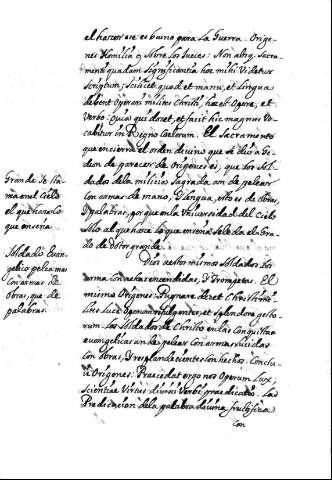 el hazer ese es bueno para la Guerra. Orige-
nes Homilia 9 sobre los Iueces: Non absq. sacra-
mento quadam significantia hoc mihi videtur
scriptum; scilicet quod et manu, et lingua
debent operari milites Christi, hoc est opere, et
verbo: Quia qui docet, et facit hic magnus vo-
cabitur in Regno Coelorum. El sacramento
que encierra el orden divino que se dio a Ge-
deon de parecer de origenes es, que los sol-
dados de la milicia sagrada an de pelear
con armas de mano, y lengua, esto es de obras,
y palabras, porque en la Universidad del Cielo
solo al que haze lo que enseña se le da el gra-
do de dotor grande.
Grande se lla-
ma en el Cielo
el que haze lo
que enseña
Dios a estos mismos soldados los
arma con achas encendidas, y trompetas. El
mismo Origenes: Pugnare debet Christi mi-
lites luce operum indigentes, et splendore gesto-
rum. Los soldados de Christo en las conquistas
evangelicas an de pelear con armas lucidas
con obras, y resplandecientes con hechos. Conclu-
ie Origenes: Praecedat ergo nos operum lux;
scientiae virtus divini Verbi praedicatio. La
Predicacion de la palabra divina fructifica
con
Soldado Evan-
gelico pelea mas
con armas de
obras, que de
palabras.